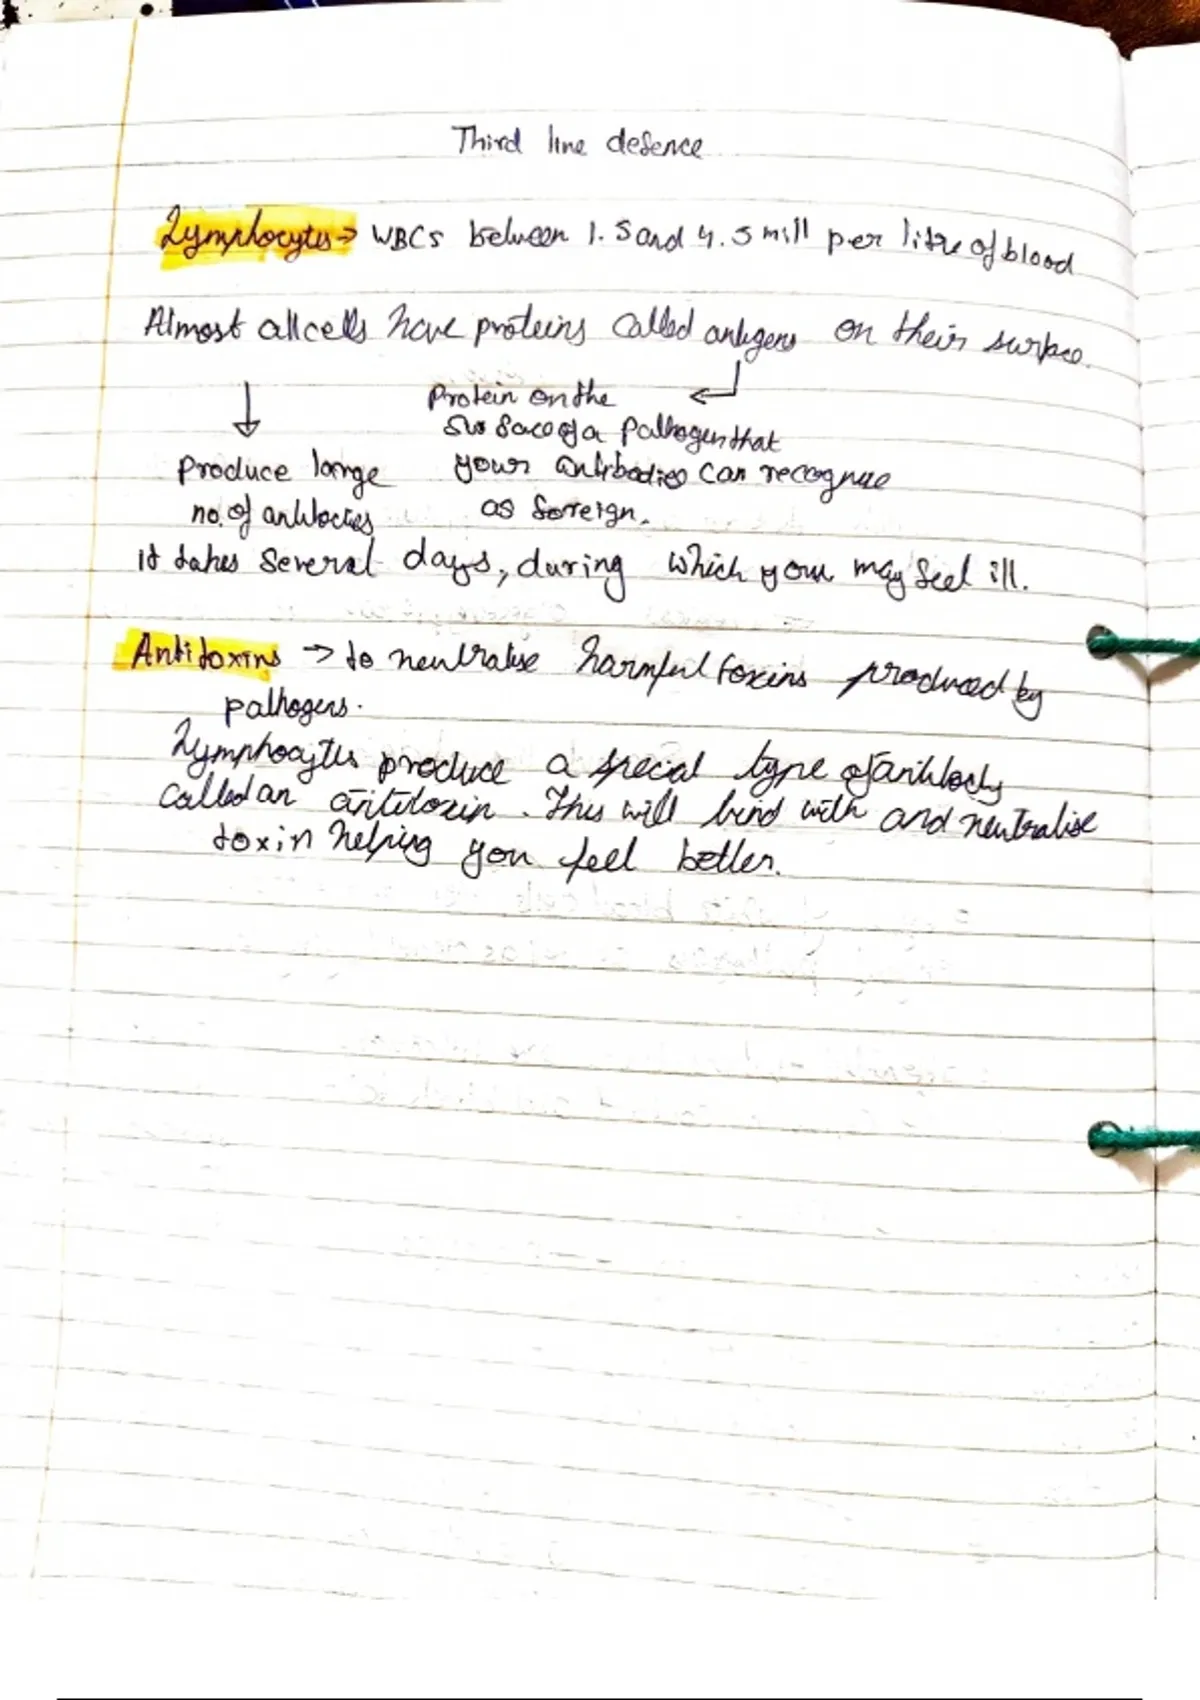 Third line defence
Lymphocytes → WBCs between 1.5 and 4.5 mill per litre of blood
Almost all cells have proteins called antigens on their surface.
Protein on the
surface of a pathogen that
Produce large your antibodies can recognise
no. of antibodies as foreign.
it takes several days, during which you may feel ill.
Antitoxins → to neutralise harmful toxins produced by
pathogens.
Lymphocytes produce a special type of antibody
called an antitoxin. This will bind with and neutralise
toxin helping you feel better.